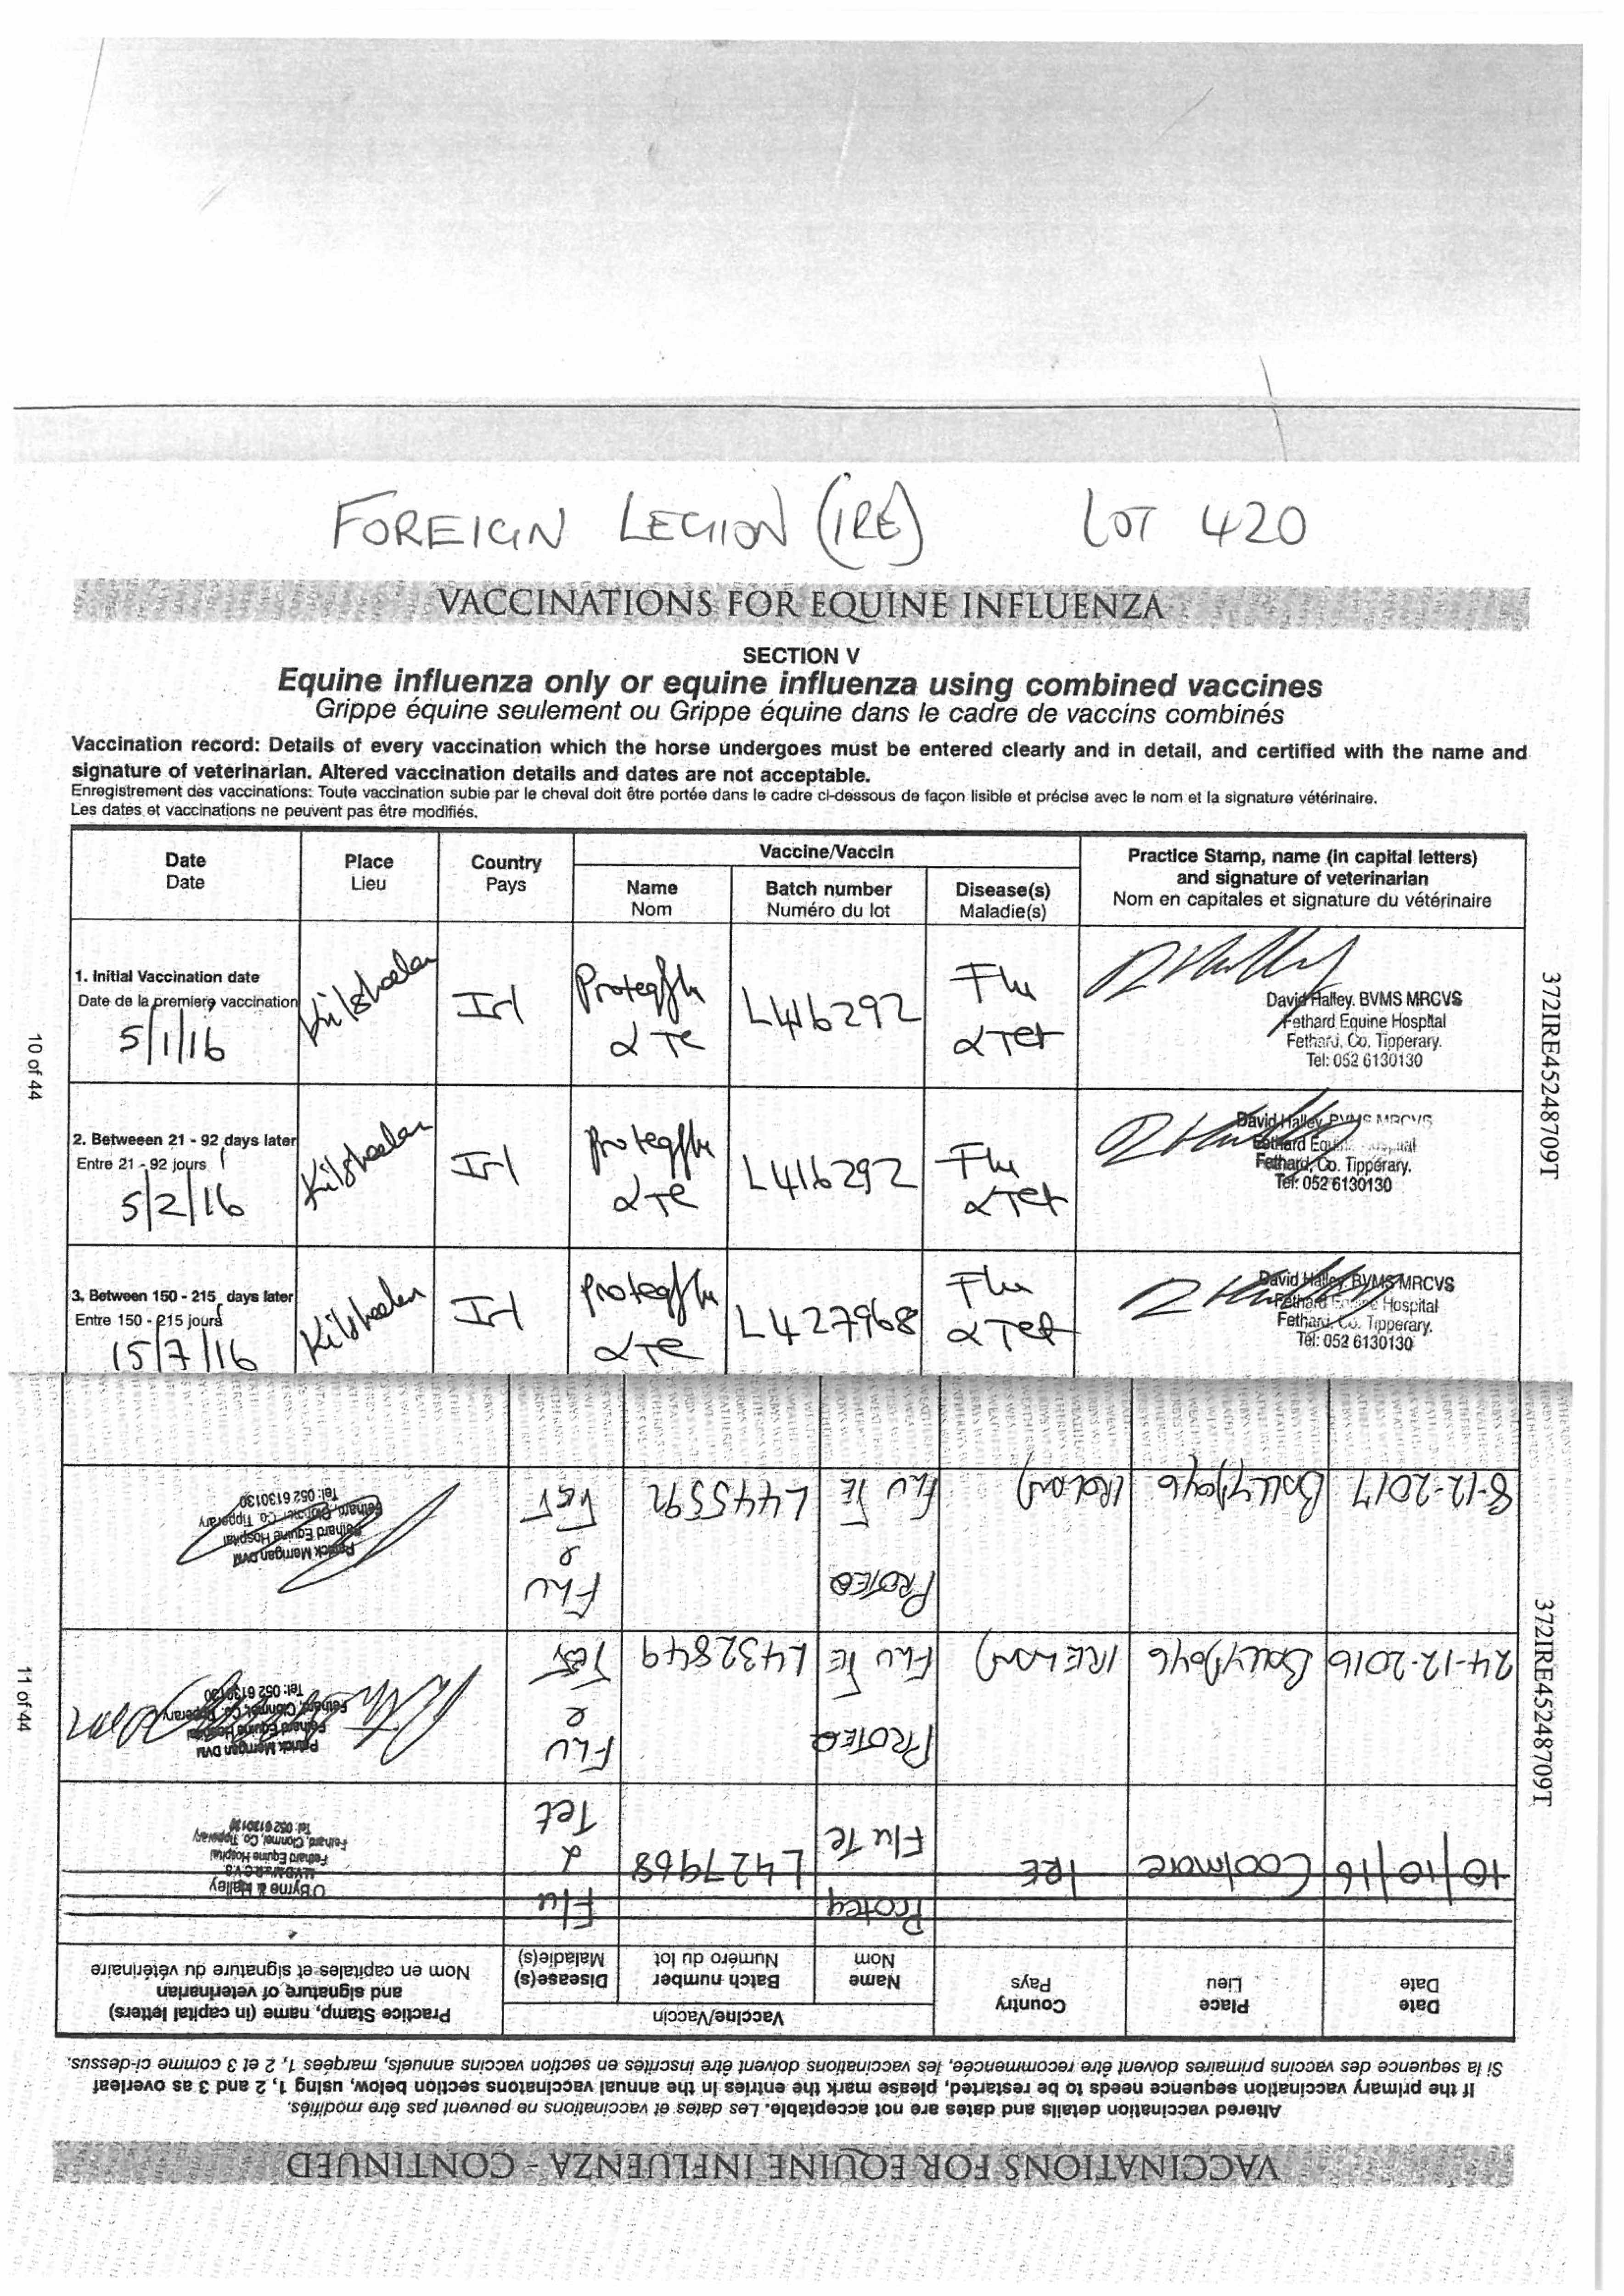 FOREIGN LEGION (IRE) LOT 420
VACCINATIONS FOR EQUINE INFLUENZA
SECTION V
Equine influenza only or equine influenza using combined vaccines
Grippe équine seulement ou Grippe équine dans le cadre de vaccins combinés
Vaccination record: Details of every vaccination which the horse undergoes must be entered clearly and in detail, and certified with the name and
signature of veterinarian. Altered vaccination details and dates are not acceptable.
Enregistrement des vaccinations: Toute vaccination subie par le cheval doit être portée dans le cadre ci-dessous de façon lisible et précise avec le nom et la signature vétérinaire.
Les dates et vaccinations ne peuvent pas être modifiés.
Date
Date
Place
Lieu
Country
Pays
Vaccine/Vaccin
Name
Nom
Batch number
Numéro du lot
Disease(s)
Maladie(s)
Practice Stamp, name (in capital letters)
and signature of veterinarian
Nom en capitales et signature du vétérinaire
1. Initial Vaccination date
Date de la premiere vaccination
5/1/16
Kilsheelan
Irl
Proteqflu
& TE
L416292
Flu
& Tet
David Halley. BVMS MRCVS
Fethard Equine Hospital
Fethard, Co. Tipperary.
Tel: 052 6130130
2. Betweeen 21 - 92 days later
Entre 21 - 92 jours
5/2/16
Kilsheelan
Irl
Proteqflu
& TE
L416292
Flu
& Tet
David Halley BVMS MRCVS
Fethard Equine Hospital
Fethard, Co. Tipperary.
Tel: 052 6130130
3. Between 150 - 215 days later
Entre 150 - 215 jours
15/7/16
Kilsheelan
Irl
Proteqflu
& TE
L427968
Flu
& Tet
David Halley BVMS MRCVS
Fethard Equine Hospital
Fethard, Co. Tipperary.
Tel: 052 6130130
10 of 44
372IRE45248709T
VACCINATIONS FOR EQUINE INFLUENZA - CONTINUED
Altered vaccination details and dates are not acceptable. Les dates et vaccinations ne peuvent pas être modifiés.
If the primary vaccination sequence needs to be restarted, please mark the entries in the annual vaccinatons section below, using 1, 2 and 3 as overleaf
Si la sequence des vaccins primaires doivent être recommencée, les vaccinations doivent être inscrites en section vaccins annuels, marqées 1, 2 et 3 comme ci-dessus.
Date
Date
Place
Lieu
Country
Pays
Vaccine/Vaccin
Name
Nom
Batch number
Numéro du lot
Disease(s)
Maladie(s)
Practice Stamp, name (in capital letters)
and signature of veterinarian
Nom en capitales et signature du vétérinaire
10/10/16
Coolmore
IRE
Proteq
Flu Te
L427968
Flu
&
Tet
O'Byrne & Halley
Fethard Equine Hospital
Fethard, Clonmel, Co. Tipperary
Tel: 052 6130130
24-12-2016
IRELAND
PROTEQ
FLU TE
L432849
FLU
&
TET
Patrick Merrigan DVM
Fethard Equine Hospital
Fethard, Clonmel, Co. Tipperary
Tel: 052 6130130
8-12-2017
IRELAND
PROTEQ
FLU TE
L445592
FLU
&
TET
Patrick Merrigan DVM
Fethard Equine Hospital
Fethard, Clonmel, Co. Tipperary
Tel: 052 6130130
11 of 44
372IRE45248709T